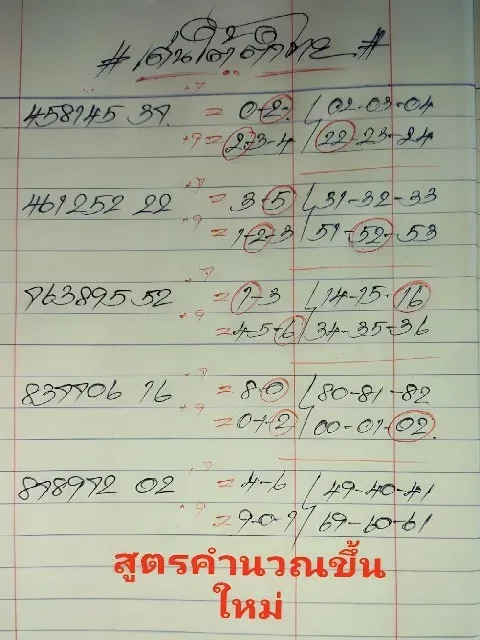 # เด่นใต้ดำไทย #
458145 37. +7 = 0-2. / 02-03-04
+9 = 2-3-4 / 22-23-24
461252 22 +7 = 3-5 / 31-32-33
+9 = 1-2-3 / 51-52-53
763895 52 +7 = 1-3 / 14-15-16
+9 = 4-5-6 / 34-35-36
837706 16 +7 = 8-0 / 80-81-82
+9 = 0-1-2 / 00-01-02.
878972 02 +7 = 4-6 / 49-40-41
+9 = 9-0-1 / 69-60-61
สูตรคำนวณขึ้น
ใหม่